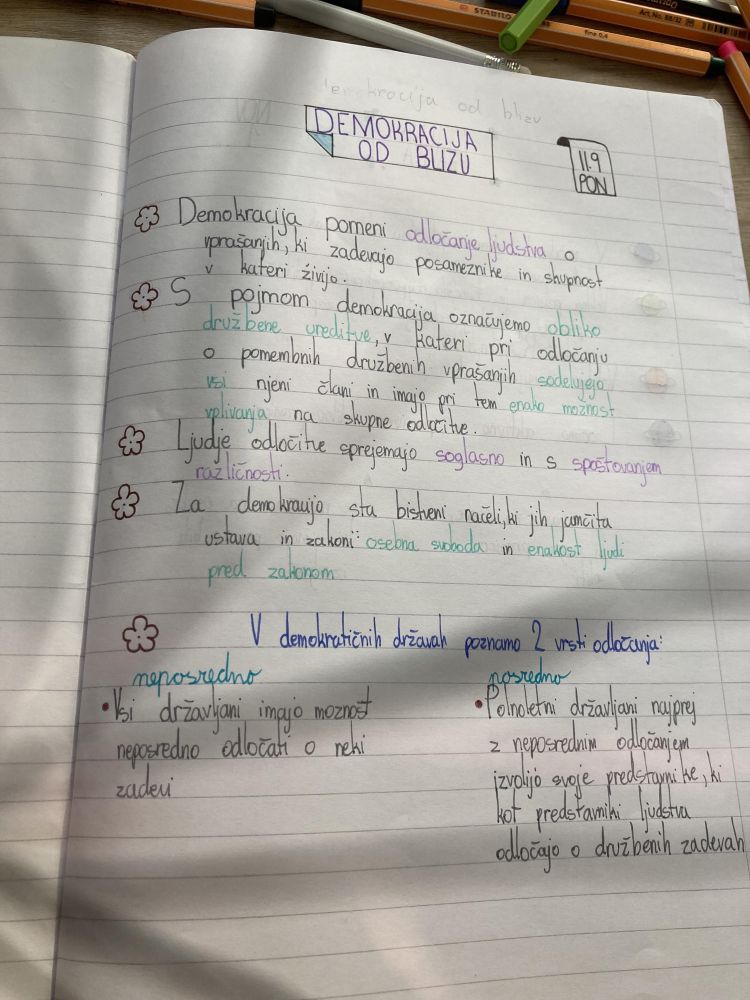 STABILO
fine 0,4
Art.No. 88/32
demokracija od blizu
DEMOKRACIJA
OD BLIZU
11.9
PON
Demokracija pomeni odločanje ljudstva o
vprašanjih, ki zadevajo posameznike in skupnost
v kateri živijo.
S pojmom demokracija označujemo obliko
družbene ureditve, v kateri pri odločanju
o pomembnih družbenih vprašanjih sodelujejo
vsi njeni člani in imajo pri tem enako možnost
vplivanja na skupne odločitve.
Ljudje odločitve sprejemajo soglasno in s spoštovanjem
različnosti.
Za demokracijo sta bistveni načeli, ki jih jamčita
ustava in zakoni: osebna svoboda in enakost ljudi
pred zakonom
V demokratičnih državah poznamo 2 vrsti odločanja:
neposredno
•Vsi državljani imajo moznost
neposredno odločati o neki
zadevi
posredno
•Polnoletni državljani najprej
z neposrednim odločanjem
izvolijo svoje predstavnike, ki
kot predstavniki ljudstva
odločajo o družbenih zadevah